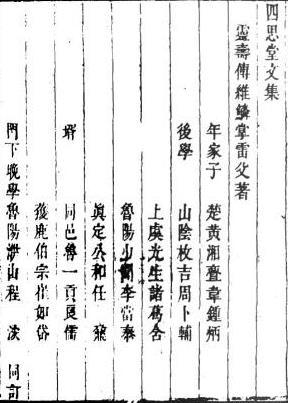 四思堂文集
靈壽傅維鱗掌雷父著
年家子 楚黃湘𤲞韋鍾炳
後學 山陰枚吉周卜輔
上虞尤生諸葛舍
魯陽少蘭李當泰
眞定公和任彛
壻 同邑魯一貢夏儒
獲鹿伯宗崔如岱
門下晚學魯陽泄山程 淡 同訂